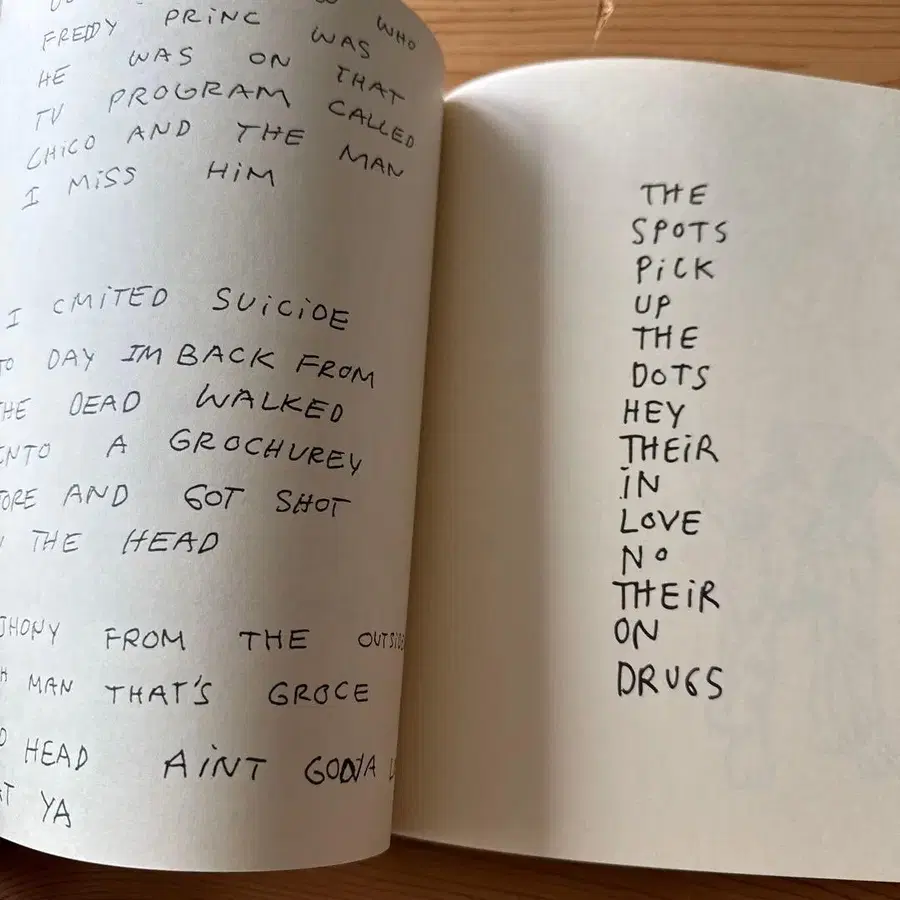 WHO
FREDY PRINC WAS
HE WAS ON THAT
TV PROGRAM CALLED
CHICO AND THE MAN
I MISS HIM
I CMITED SUICIDE
TO DAY IM BACK FROM
THE DEAD WALKED
INTO A GROCHUREY
AND GOT SHOT
THE HEAD
JHONY FROM THE
MAN THAT'S GROCE
HEAD AINT GONNA
YA
THE
SPOTS
PICK
UP
THE
DOTS
HEY
THEIR
IN
LOVE
NO
THEIR
ON
DRUGS